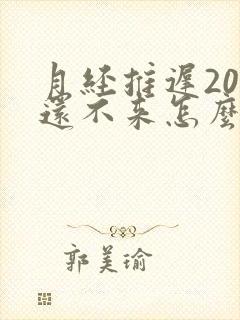 月经推遲20
還不来怎麼
郭美瑜